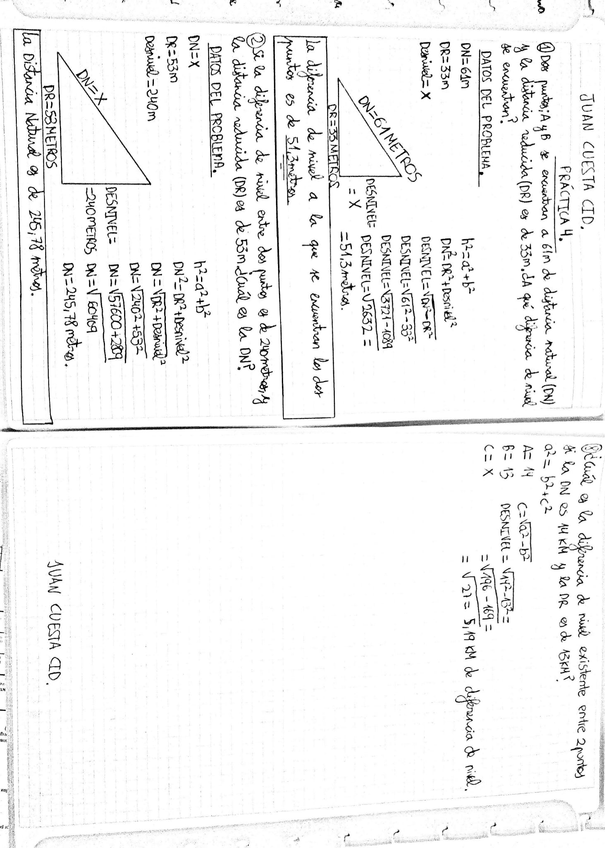 JUAN CUESTA CID.
PRÁCTICA 4.
① Dos puntos; A y B se encuentran a 61m de distancia natural (DN)
y la distancia reducida (DR) es de 33m. ¿A qué diferencia de nivel
se encuentran?
DATOS DEL PROBLEMA.
DN=61m
DR=33m
Desnivel=X
h²=a²+b²
DN²=DR²+Desnivel²
DESNIVEL=√DN²-DR²
DESNIVEL=√61²-33²
DESNIVEL=√3721-1089
DESNIVEL=√2632 =
=51,3 metros.
DN=61 METROS
DESNIVEL=
=X
DR=33 METROS
La diferencia de nivel a la que se encuentran los dos
puntos es de 51,3 metros.
② Si la diferencia de nivel entre dos puntos es de 240 metros, y
la distancia reducida (DR) es de 53m ¿Cuál es la DN?
DATOS DEL PROBLEMA.
DN=X
DR=53m
Desnivel=240m
h²=a²+b²
DN²=DR²+Desnivel²
DN=√DR²+Desnivel²
DN=√240²+53²
DN=√57600+2809
DN=√60409
DN=245,78 metros.
DN=X
DESNIVEL=
=240 METROS
DR=53 METROS
La Distancia Natural es de 245,78 metros.
③ ¿Cuál es la diferencia de nivel existente entre 2 puntos
si la DN es 14 KM y la DR es de 13 KM?
a²=b²+c²
A=14
B=13
C=X
C=√a²-b²
DESNIVEL=√14²-13²=
=√196-169=
=√27= 5,19 KM de diferencia de nivel.
JUAN CUESTA CID.